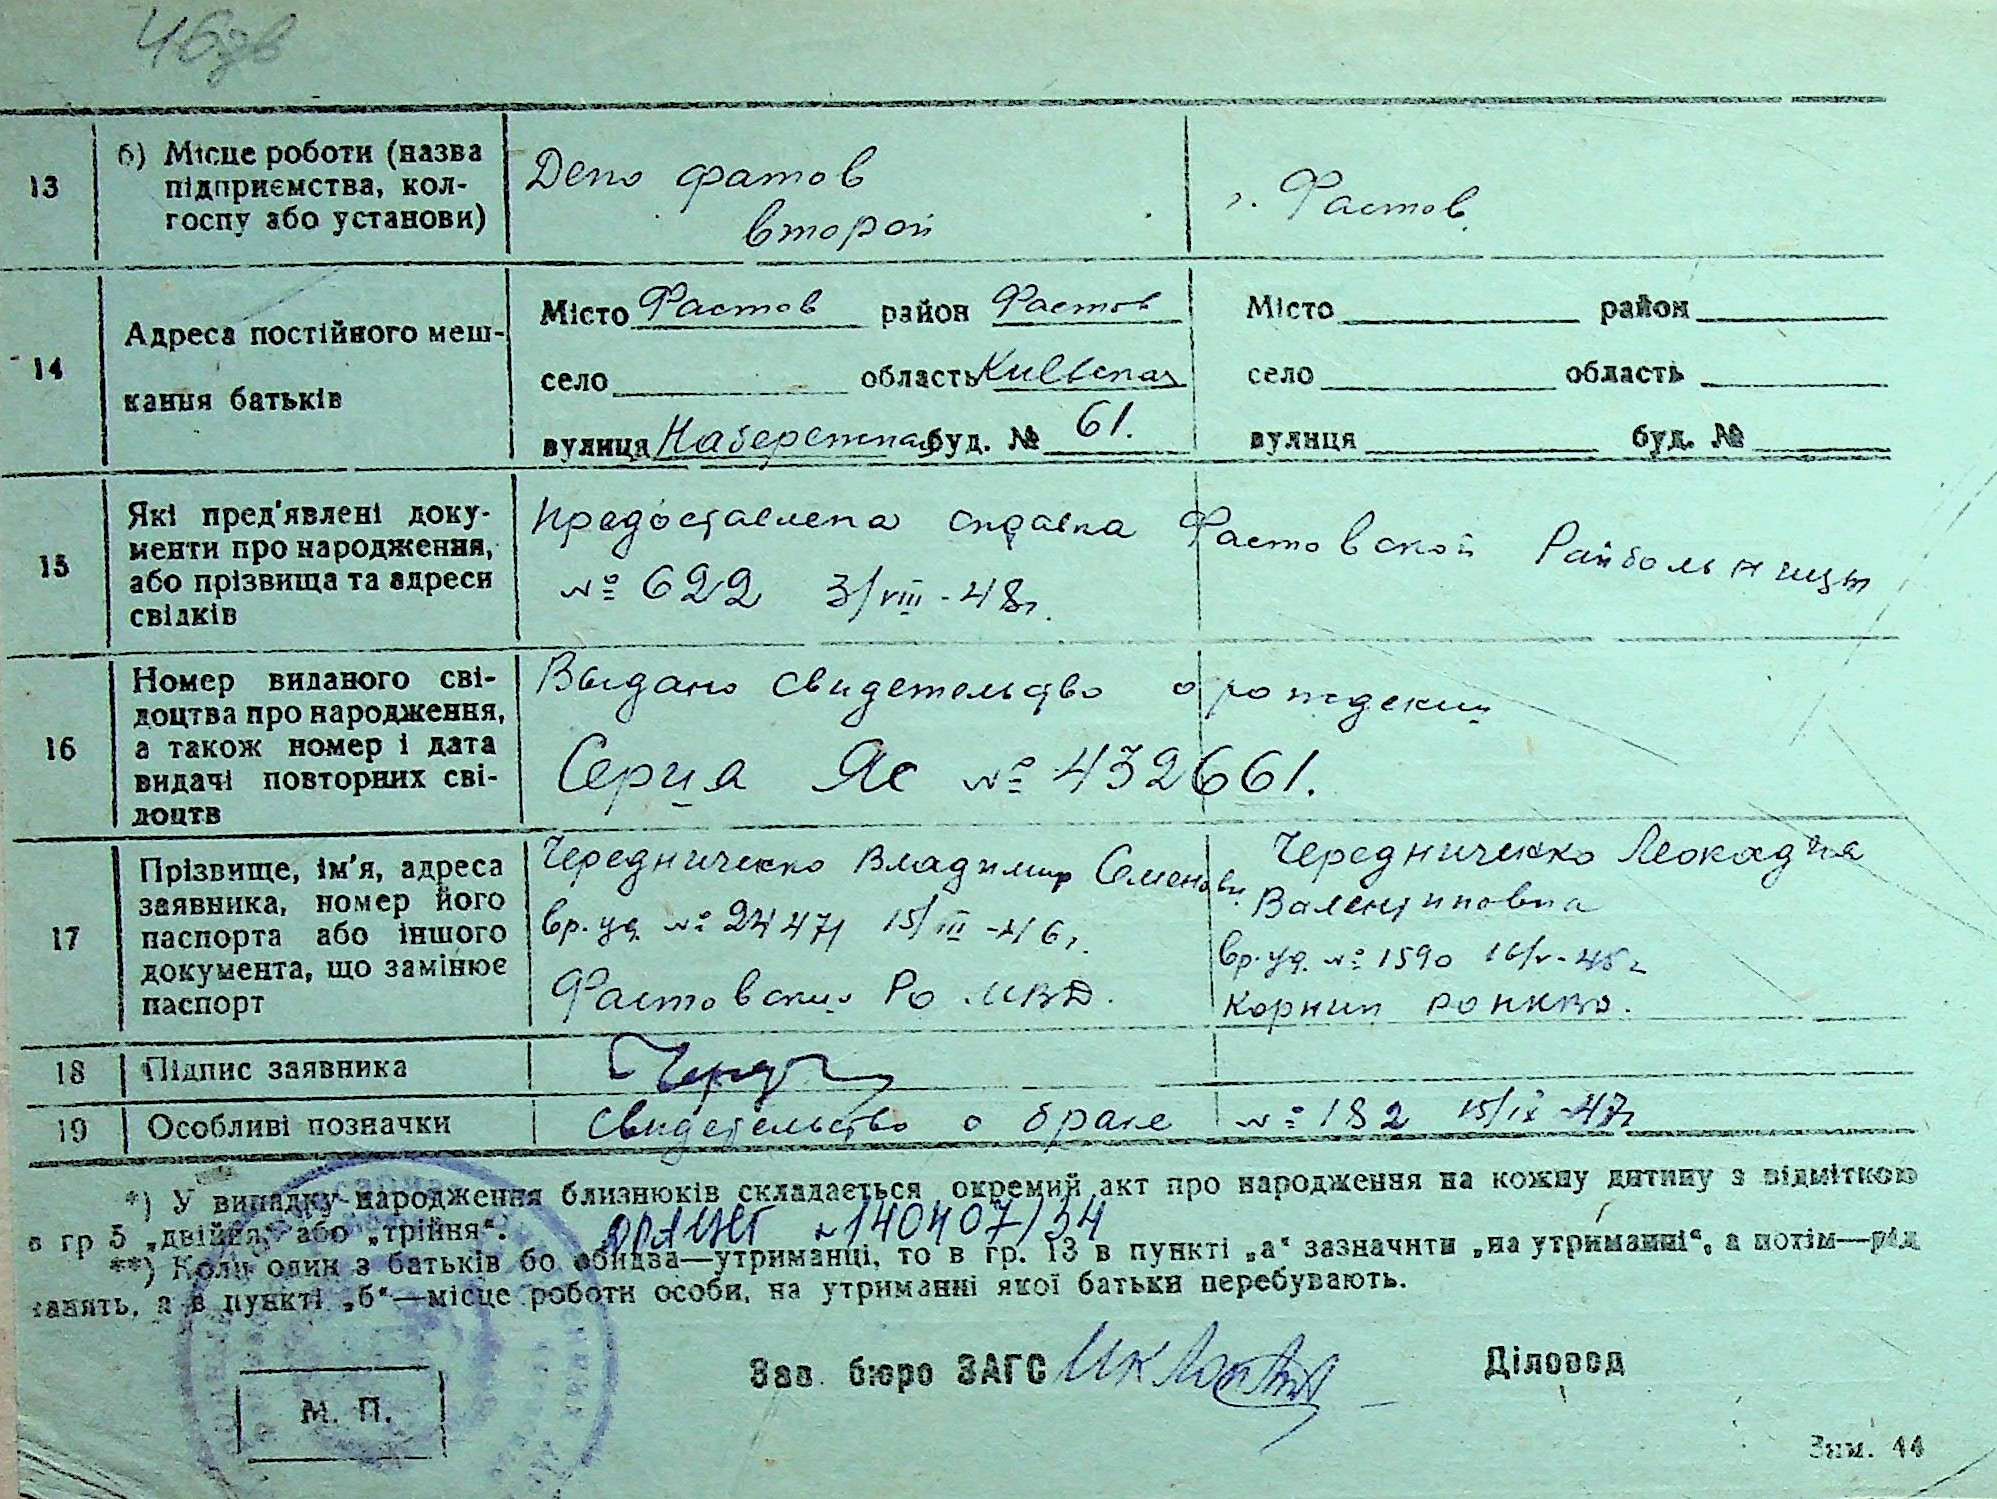 46зв
13
б) Місце роботи (назва
підприємства, кол-
госпу або установи)
Депо фатов
второй
г. Фастов.
14
Адреса постійного меш-
кання батьків
Місто Фастов район Фастов
село область Киевская
вулиця Набережная буд. № 61.
Місто район
село область
вулиця буд. №
15
Які пред'явлені доку-
менти про народження,
або прізвища та адреси
свідків
Предоставлена справка Фастовской Райбольницы
№ 622 3/VIII-48г.
16
Номер виданого сві-
доцтва про народження,
а також номер і дата
видачі повторних сві-
доцтв
Выдано свидетельство о рождении
Серия Яс № 432661.
17
Прізвище, ім'я, адреса
заявника, номер його
паспорта або іншого
документа, що замінює
паспорт
Чередниченко Владимир Семенови
вр. уд. № 24471 15/III-46г.
Фастовским РО МВД.
Чередниченко Леокадия
Валентиновна
вр. уд. № 1590 16/V-45г
Корнин РОНКВД.
18
Підпис заявника
Черед
19
Особливі позначки
Свидетельство о браке № 182 15/IX-47г
*) У випадку народження близнюків складається окремий акт про народження на кожну дитину з відміткою
в гр 5 „двійня, або „трійня“.
№140407/34
**) Коли один з батьків бо обидва—утриманці, то в гр. 13 в пункті „а“ зазначити „на утриманні“, а потім—рід
занять, а в пункті „б“—місце роботи особи, на утриманні якої батьки перебувають.
Зав. бюро ЗАГС
Діловод
М. П.
Зим. 44